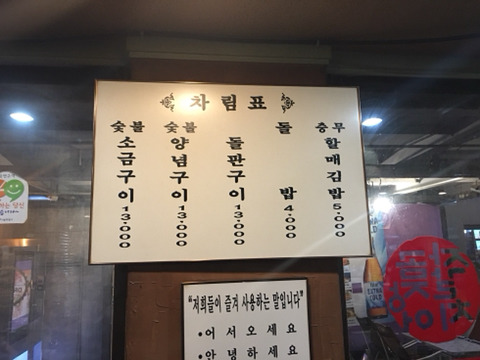 차림표
숯불소금구이 13.000
숯불양념구이 13.000
돌판구이 13.000
돌밥 4.000
충무할매김밥 5.000
"저희들이 즐겨 사용하는 말입니다"
•어서오세요
•안녕하세요
EXTRA
COLD